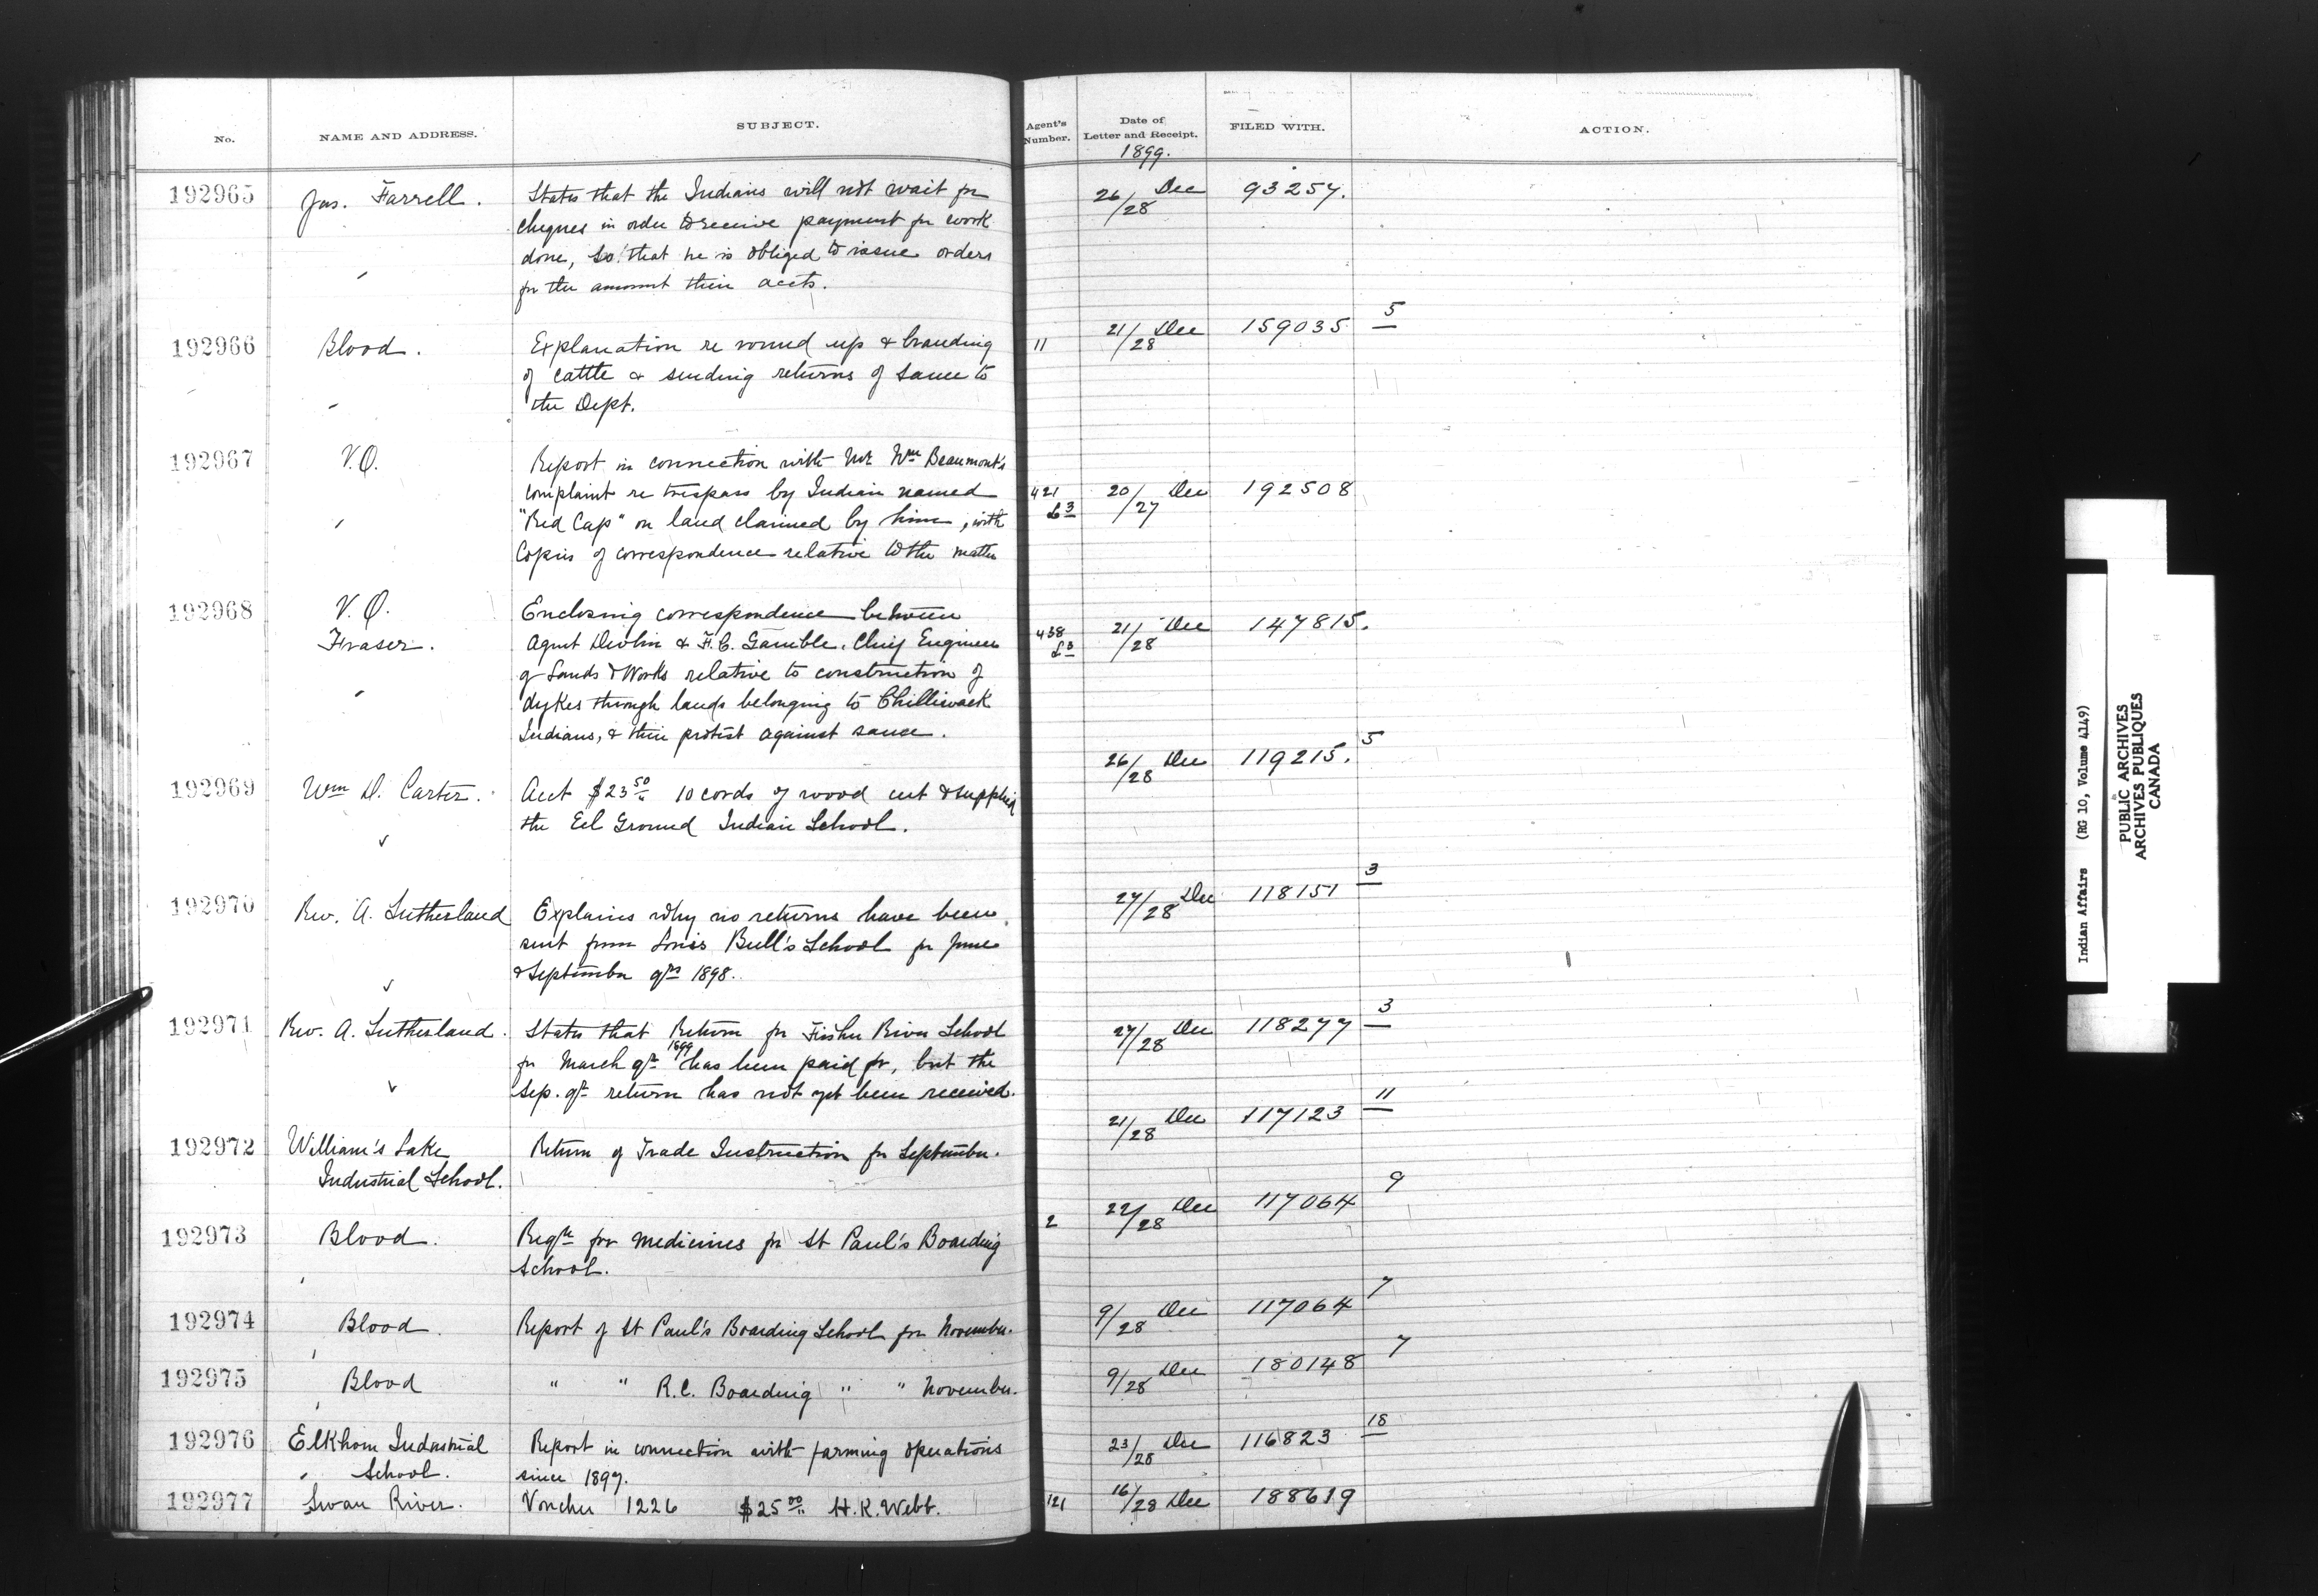 No. NAME AND ADDRESS. SUBJECT. Agent's Number. Date of Letter and Receipt. FILED WITH. ACTION.
1899.
192965 Jas. Farrell. States that the Indians will not wait for 26/28 Dec 93257.
cheques in order to receive payment for work
done, so that he is obliged to issue orders
for the amount their accts.
192966 Blood. Explanation re round up & branding 11 21/28 Dec 159035 5
of cattle & sending returns of same to
the Dept.
192967 V.O. Report in connection with Mr Wm Beaumont's
complaint re trespass by Indian named 421 20/27 Dec 192508
"Red Cap" on land claimed by him, with £3
Copies of correspondence relative to the matter
192968 V.O. Enclosing correspondence between
Fraser. Agent Devlin & F.C. Gamble, Chief Engineer 438 £3 21/28 Dec 147815.
of Lands & Works relative to construction of
dykes through lands belonging to Chilliwack
Indians, & their protest against same.
192969 Wm D. Carter. Acct $23 50 10 cords of wood cut & supplied 26/28 Dec 119215. 5
the Eel Ground Indian School.
192970 Rev. A. Sutherland Explains why no returns have been 27/28 Dec 118151 3
sent from Louis Bull's School for June
& September qrs 1898.
192971 Rev. A. Sutherland. States that Return for Fisher River School 27/28 Dec 118277 3
for March qr 1899 has been paid for, but the
Sep. qr return has not yet been received.
192972 William's Lake Return of Trade Instruction for September. 21/28 Dec 117123 11
Industrial School.
192973 Blood. Reqn for medicines for St Paul's Boarding 2 22/28 Dec 117064 9
School.
192974 Blood. Report of St Paul's Boarding School for November. 9/28 Dec 117064 7
192975 Blood " " R.C. Boarding " " November. 9/28 Dec 180148 7
192976 Elkhorn Industrial Report in connection with farming operations 23/28 Dec 116823 18
School. since 1897.
192977 Swan River. Voucher 1226 $25 00 H.K. Webb. 121 16/28 Dec 188619
Indian Affairs (RG 10, Volume 4149)
PUBLIC ARCHIVES
ARCHIVES PUBLIQUES
CANADA